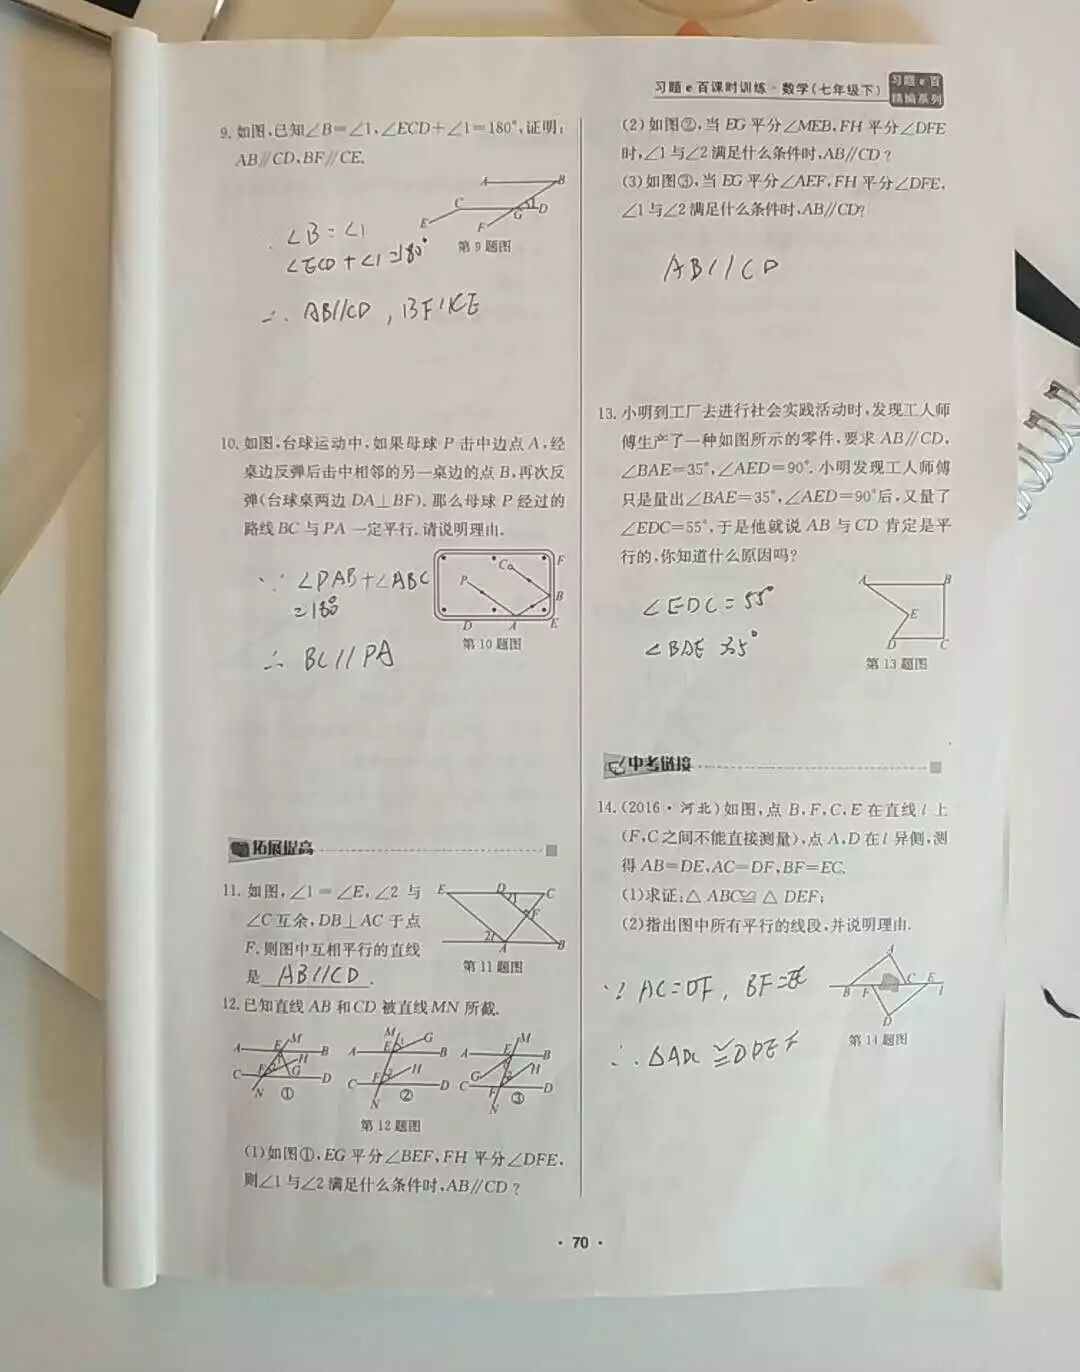 习题e百课时训练·数学(七年级下)
习题e百
精编系列
9. 如图,已知∠B=∠1,∠ECD+∠1=180°,证明:
AB∥CD,BF∥CE.
A B
C G 1 D
E F
第9题图
∠B=∠1
∠ECD+∠1=180°
∴ AB//CD, BF//CE
10. 如图,台球运动中,如果母球P击中边点A,经
桌边反弹后击中相邻的另一桌边的点B,再次反
弹(台球桌两边DA⊥BF).那么母球P经过的
路线BC与PA一定平行.请说明理由.
C F
P B
D A E
第10题图
∵ ∠PAB+∠ABC
=180°
∴ BC//PA
拓展提高
11. 如图,∠1=∠E,∠2与
∠C互余,DB⊥AC于点
F.则图中互相平行的直线
是 AB//CD .
E D 1 C
F
2 A B
第11题图
12. 已知直线AB和CD被直线MN所截.
A E M B
C F H G D
N ①
M G
A E 1 B
C F 2 H D
N ②
M
A E B
G H
C F 2 D
N ③
第12题图
(1)如图①,EG平分∠BEF,FH平分∠DFE,
则∠1与∠2满足什么条件时,AB∥CD?
(2)如图②,当EG平分∠MEB,FH平分∠DFE
时,∠1与∠2满足什么条件时,AB∥CD?
(3)如图③,当EG平分∠AEF,FH平分∠DFE,
∠1与∠2满足什么条件时,AB∥CD?
AB//CD
13. 小明到工厂去进行社会实践活动时,发现工人师
傅生产了一种如图所示的零件,要求AB∥CD,
∠BAE=35°,∠AED=90°.小明发现工人师傅
只是量出∠BAE=35°,∠AED=90°后,又量了
∠EDC=55°,于是他就说AB与CD肯定是平
行的,你知道什么原因吗?
A B
E
D C
第13题图
∠EDC=55°
∠BAE 35°
中考链接
14. (2016·河北)如图,点B,F,C,E在直线l上
(F,C之间不能直接测量),点A,D在l异侧,测
得AB=DE,AC=DF,BF=EC.
(1)求证:△ABC≌△DEF;
(2)指出图中所有平行的线段,并说明理由.
A
B F C E l
D
第14题图
∵ AC=DF, BF=
∴
· 70 ·